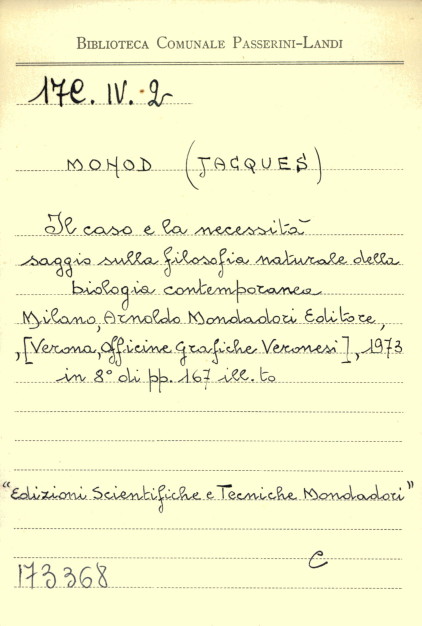 BIBLIOTECA COMUNALE PASSERINI-LANDI
17C. IV. 2
MONOD (JACQUES)
Il caso e la necessità
saggio sulla filosofia naturale della
biologia contemporanea
Milano, Arnoldo Mondadori Editore,
, [Verona, Officine Grafiche Veronesi], 1973
in 8° di pp. 167 ill.to
"Edizioni Scientifiche e Tecniche Mondadori"
C
173368